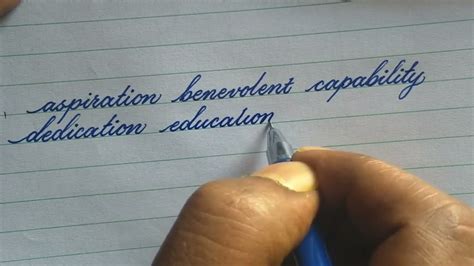 aspiration benevolent capability
dedication education